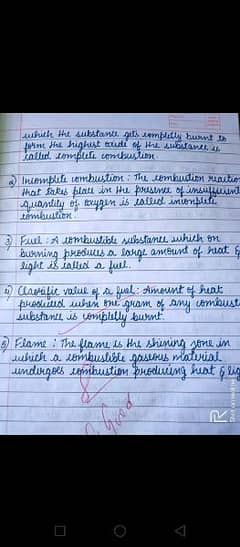 which the substance gets completly burnt to
form the highest oxide of the substance is
called complete combustion.
2) Incomplete combustion : The combustion reaction
that takes place in the presence of insufficient
quantity of oxygen is called incomplete
combustion.
3) Fuel : A combustible substance which on
burning produces a large amount of heat &
light is called a fuel.
4) Calorific value of a fuel : Amount of heat
produced when one gram of any combust
substance is completly burnt.
5) Flame : The flame is the shining zone in
which a combustible gaseous material
undergoes combustion producing heat & lig
Good
Shot on realme